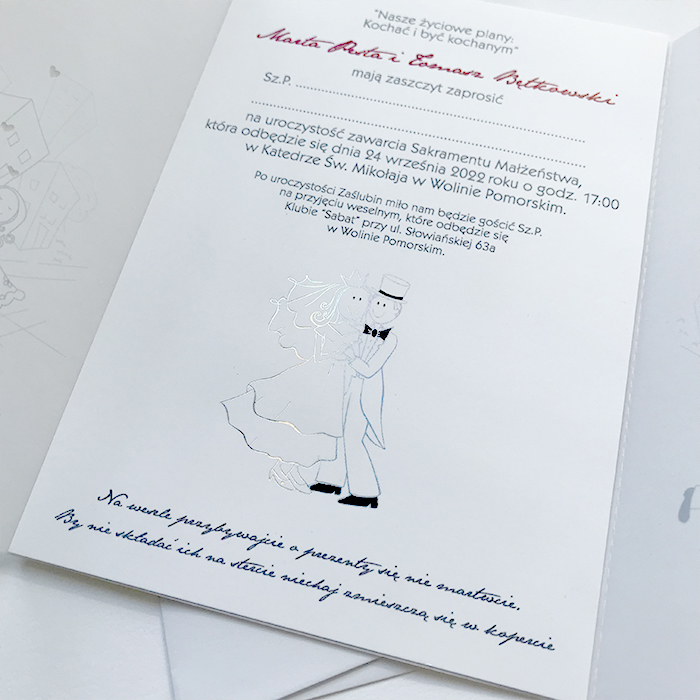 "Nasze życiowe plany:
Kochać i być kochanym"
Marta Pesta i Tomasz Bętkowski
mają zaszczyt zaprosić
Sz.P. ................................................
................................................................
na uroczystość zawarcia Sakramentu Małżeństwa,
która odbędzie się dnia 24 września 2022 roku o godz. 17:00
w Katedrze Św. Mikołaja w Wolinie Pomorskim.
Po uroczystości Zaślubin miło nam będzie gościć Sz.P.
na przyjęciu weselnym, które odbędzie się
Klubie "Sabat" przy ul. Słowiańskiej 63a
w Wolinie Pomorskim.
Na wesele przybywajcie o prezenty się nie martwcie,
By nie składać ich na stercie niechaj zmieszczą się w kopercie